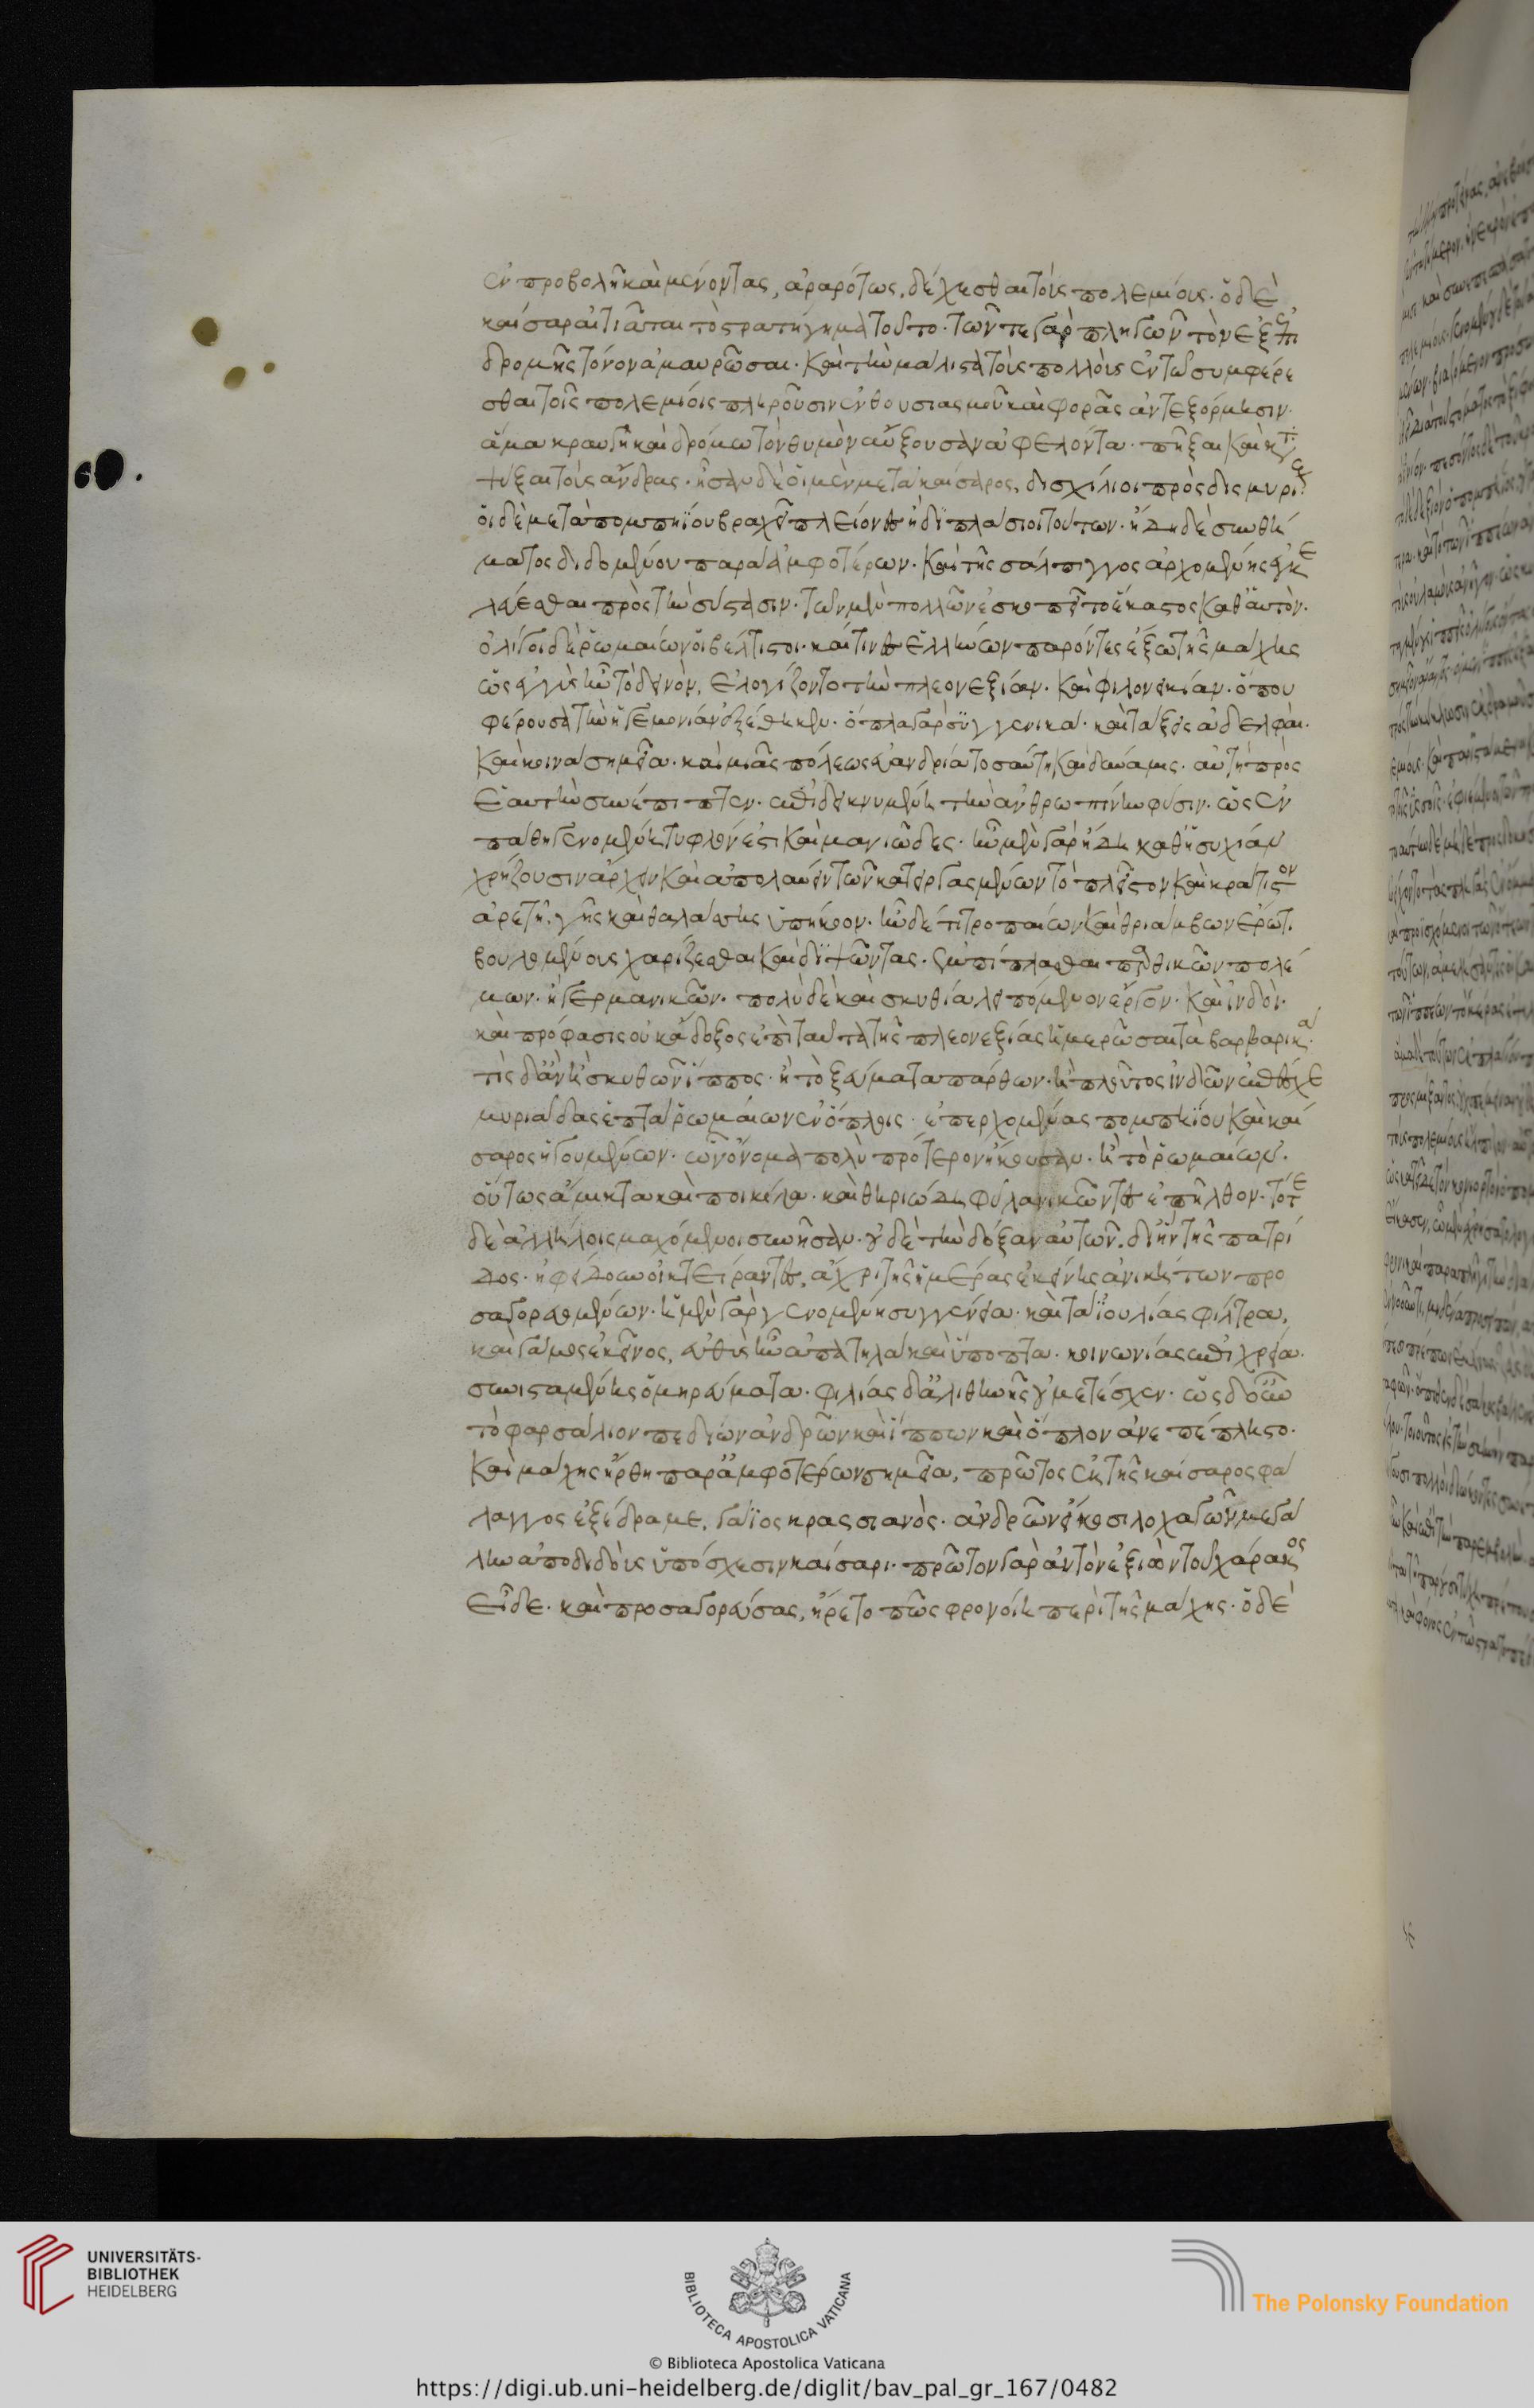 ἐν προβολῇ καὶ μένοντας, ἀραρότως, δέχεσθαι τοὺς πολεμίους· ὁ δὲ
καίσαρ αἰτιᾶται τὸ στρατήγημα τοῦτο· τῶν τε γὰρ πληγῶν τὸν ἐξ ἐπι
δρομῆς τόνον ἀμαυρῶσαι· καὶ τὴν μάλιστα τοὺς πολλοὺς ἐν τῷ συμφέρε
σθαι τοῖς πολεμίοις πληροῦσιν ἐνθουσιασμοῦ καὶ φορᾶς ἀντεξόρμησιν·
ἅμα κραυγῇ καὶ δρόμω τὸν θυμὸν αὔξουσαν ἀφελόντα· πῆξαι καὶ κατ
ψύξαι τοὺς ἄνδρας· ἦσαν δὲ οἱ μὲν μετὰ καίσαρος, δισχίλιοι πρὸς δισμυρί
οἱ δὲ μετὰ πομπηΐου βραχεῖ πλείονες ἢ διπλάσιοι τούτων· ἤδη δὲ συνθή
ματος διδομένου παρὰ ἀμφοτέρων· καὶ τῆς σάλπιγγος ἀρχομένης ἐγκε
λεύεσθαι πρὸς τὴν σύστασιν· τῶν μὲν πολλῶν ἐσκοπεῖτο ἕκαστος καθ' αὑτὸν·
ὀλίγοι δὲ ῥωμαίων οἱ βέλτιστοι· καί τινες ἑλλήνων παρόντες ἔξω τῆς μάχης
ὡς ἐγγὺς ἦν τὸ δεινὸν, ἐλογίζοντο τὴν πλεονεξίαν· καὶ φιλονεικίαν· ὅπου
φέρουσα τὴν ἡγεμονίαν ἐξέθηκεν· ὅπλα γὰρ συγγενικὰ· καὶ τάξεις ἀδελφαὶ·
καὶ κοινὰ σημεῖα· καὶ μιᾶς πόλεως εὐανδρία τοσαύτη καὶ δύναμις· αὐτὴ πρὸς
ἑαυτὴν συνέπιπτεν· ἐπιδεικνυμένη τὴν ἀνθρωπίνην φύσιν· ὡς ἐν
πάθη γενομένη τυφλόν ἐστι καὶ μανιῶδες· ἦν μὲν γὰρ ἤδη καθ' ἡσυχίαν
χρῄζουσιν ἄρχειν καὶ ἀπολαύειν τῶν κατειργασμένων τὸ πλεῖστον καὶ κράτιστον
ἀρετῇ, γῆς καὶ θαλάσσης ὑπήκοον· ἦν δέ τι τροπαίων καὶ θριάμβων ἔρωτι
βουλομένους χαρίζεσθαι καὶ διψῶντας· ἐμπίπλασθαι παρθικῶν πολέ
μων· ἢ γερμανικῶν· πολὺ δὲ καὶ σκυθία λειπόμενον ἔργον· καὶ ἰνδοὶ·
καὶ πρόφασις οὐκ ἄδοξος ἐπὶ ταῦτα τῆς πλεονεξίας ἡμερῶσαι τὰ βαρβαρικά·
τίς δ' ἂν ἢ σκυθῶν ἵππος· ἢ τοξεύματα πάρθων· ἢ πλοῦτος ἰνδῶν ἐπέσχε
μυριάδας ἑπτὰ ῥωμαίων ἐν ὅπλοις· ἐπερχομένας πομπηΐου καὶ καί
σαρος ἡγουμένων· ὧν ὄνομα πολὺ πρότερον ἤκουσαν· ἢ τὸ ῥωμαίων·
οὕτως ἄμικτα καὶ ποικίλα· καὶ θηριώδη φῦλα νικῶντες ἐπῆλθον· τότε
δὲ ἀλλήλοις μαχόμενοι συνῇσαν· οὐδὲ τὴν δόξαν αὐτῶν· δι' ἣν τῆς πατρί
δος· ἠφείδουν οἰκτείραντες, ἄχρι τῆς ἡμέρας ἐκείνης ἀνικήτων προ
σαγορευομένων· ἡ μὲν γὰρ γενομένη συγγένεια· καὶ τὰ ἰουλίας φίλτρα,
καὶ γάμος ἐκεῖνος, εὐθὺς ἦν ἀπατηλὰ καὶ ὕποπτα· κοινωνίας ἐπὶ χρεία·
συνισταμένης ὁμηρεύματα· φιλίας δ' ἀληθινῆς οὐ μετέσχεν· ὡς δ' οὖν
τὸ φαρσάλιον πεδίων ἀνδρῶν καὶ ἵππων καὶ ὅπλον ἀνεπέπληστο·
καὶ μάχης ἤρθη παρ' ἀμφοτέρων σημεῖα, πρῶτος ἐκ τῆς καίσαρος φά
λαγγος ἐξέδραμε, γάϊος κρασσιανὸς· ἀνδρῶν εἴκοσι λοχαγῶν μεγά
λην ἀποδιδοὺς ὑπόσχεσιν καίσαρι· πρῶτον γὰρ αὐτὸν ἐξιὼν τοῦ χάρακος
εἶδε· καὶ προσαγορεύσας, ἤρετο πῶς φρονοίη περὶ τῆς μάχης· ὁ δὲ
UNIVERSITÄTS-
BIBLIOTHEK
HEIDELBERG
BIBLIOTECA APOSTOLICA VATICANA
The Polonsky Foundation
© Biblioteca Apostolica Vaticana
https://digi.ub.uni-heidelberg.de/diglit/bav_pal_gr_167/0482